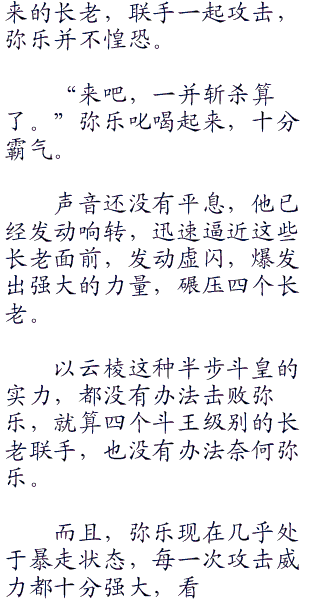 来的长老，联手一起攻击，
弥乐并不惶恐。
“来吧，一并斩杀算
了。”弥乐叱喝起来，十分
霸气。
声音还没有平息，他已
经发动响转，迅速逼近这些
长老面前，发动虚闪，爆发
出强大的力量，碾压四个长
老。
以云棱这种半步斗皇的
实力，都没有办法击败弥
乐，就算四个斗王级别的长
老联手，也没有办法奈何弥
乐。
而且，弥乐现在几乎处
于暴走状态，每一次攻击威
力都十分强大，看